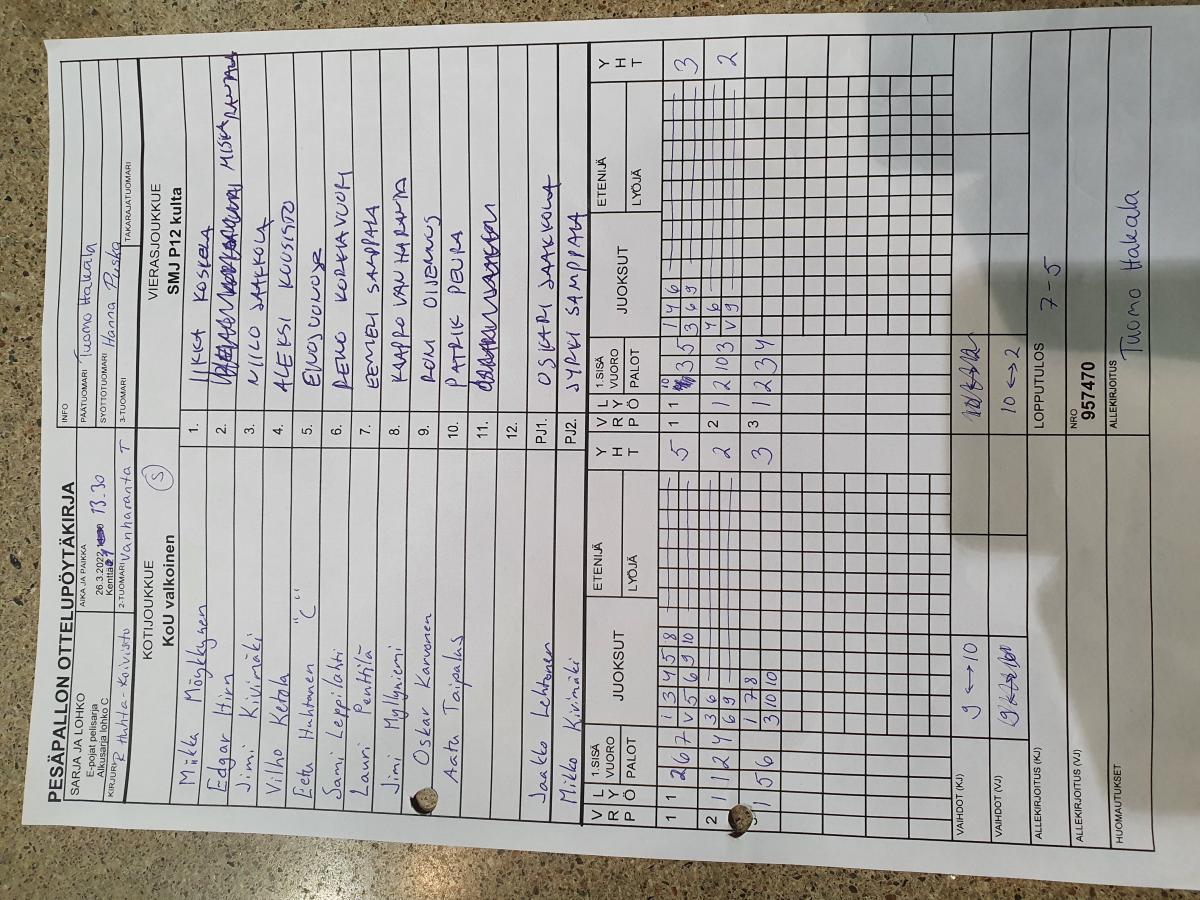 PESÄPALLON OTTELUPÖYTÄKIRJA
SARJA JA LOHKO
E-pojat pelisarja
Alkusarja lohko C
AIKA JA PAIKKA
26.3.2022 13.30
Kenttä
INFO
PÄÄTUOMARI Tuomo Hakala
SYÖTTÖTUOMARI Hanna Puska
KIRJURI R Huhta-Koivisto
2-TUOMARI Vanharanta T
3-TUOMARI
TAKARAJATUOMARI
KOTIJOUKKUE
KoU valkoinen
S
VIERASJOUKKUE
SMJ P12 kulta
Miikka Möykkynen 1. IIKKA KOSKELA
Edgar Hirn 2. MISKA RANTALA
Jimi Kivimäki 3. NIILO JAAKKOLA
Vilho Ketola 4. ALEKSI KUUSISTO
Eetu Huhtanen "C" 5.
Sami Leppilahti 6. REKO KORPIAVUORI
Lauri Penttilä 7. EEMELI SAMPPALA
Jimi Myllyniemi 8. KAAPPO VANHARANTA
Oskar Karvonen 9. RONI OIJENNUS
Aatu Taipalus 10. PATRIK PEURA
11.
12.
Jaakko Lehtonen PJ1. OSKARI JAAKKOLA
Mikko Kivimäki PJ2. JYRKI SAMPPALA
V R P L Y Ö 1.SISÄ VUORO PALOT JUOKSUT ETENIJÄ LYÖJÄ Y H T V R P L Y Ö 1.SISÄ VUORO PALOT JUOKSUT ETENIJÄ LYÖJÄ Y H T
1 1 2 6 7 1 3 4 5 8 5 1 1 10 3 5 1 4 6 3
V 5 6 9 10 3 6 9
2 1 1 2 4 3 6 2 2 1 2 10 3 4 6 2
6 9 V 9
1 5 6 1 7 8 3 3 1 2 3 4
3 10 10
VAIHDOT (KJ) 9 ↔ 10
VAIHDOT (VJ) 10 ↔ 2
ALLEKIRJOITUS (KJ)
LOPPUTULOS 7-5
ALLEKIRJOITUS (VJ)
NRO
957470
HUOMAUTUKSET
ALLEKIRJOITUS Tuomo Hakala